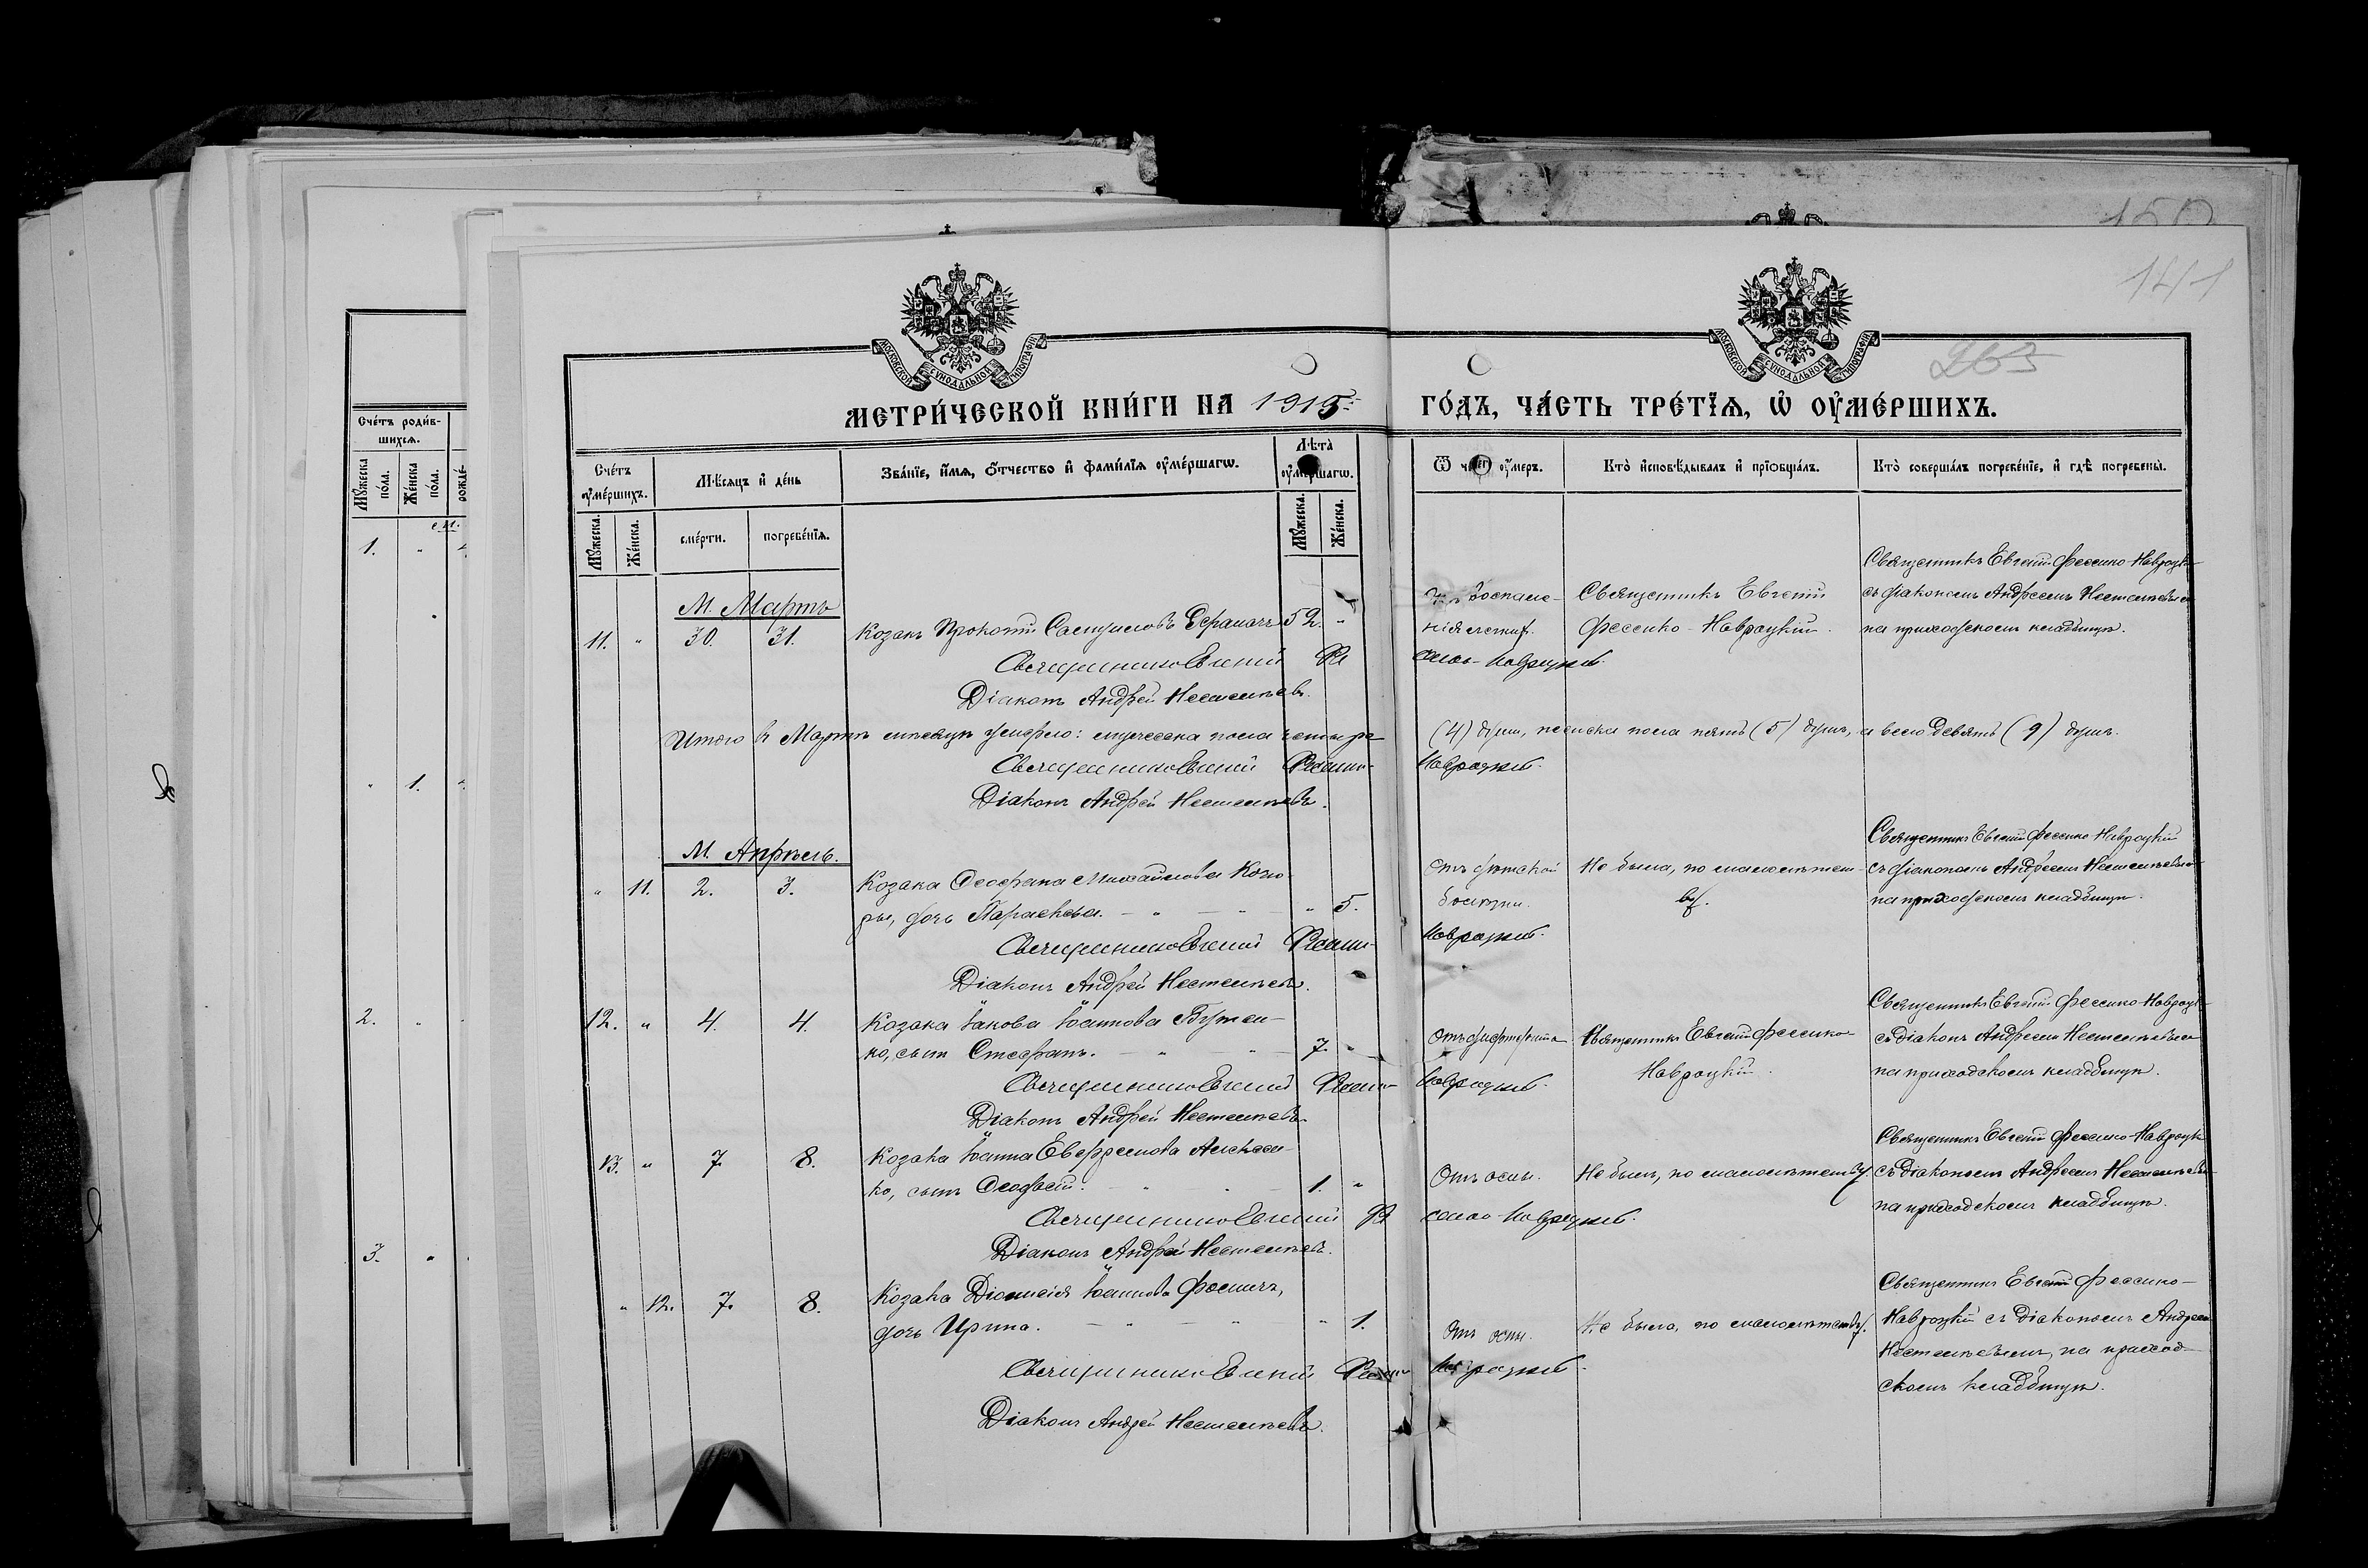 150
141
265
МОСКОВСКОЙ СѴНОДАЛЬНОЙ ТИПОГРАФІИ
МОСКОВСКОЙ СѴНОДАЛЬНОЙ ТИПОГРАФІИ
МЕТРИ́ЧЕСКОЙ КНИ́ГИ НА 1915 ГО́ДЪ, ЧА́СТЬ ТРЕ́ТЇѦ, Ѡ҆ ОУ҆МЕ́РШИХЪ.
Сче́тъ роди́в-
шихсѧ.
Мꙋ́жеска по́ла.
Же́нска по́ла.
рожде́-
1. "
" 1.
2. "
3. "
Сче́тъ оу҆ме́ршихъ.
Мꙋ́жеска.
Же́нска.
Мѣ́сѧцъ и҆ де́нь
сме́рти.
погребе́нїѧ.
Зва́нїе, и҆́мѧ, ѻ҆́тчество и҆ фами́лїѧ оу҆ме́ршагѡ.
Лѣ̑та̀ оу҆ме́ршагѡ.
Мꙋ́жеска.
Же́нска.
Ѿ чегѡ̀ оу҆́меръ.
Кто̀ и҆сповѣ́дывалъ и҆ прїѡбща́лъ.
Кто̀ соверша́лъ погребе́нїе, и҆ гдѣ̀ погребены̀.
М. Мартъ
11. " 30. 31. Козакъ Прокопій 52. "
воспале-
нія легкихъ.
Священникъ Евгеній
Фесенко-Навроцкій.
Священникъ Евгеній Фесенко-Навроцкій
съ діакономъ Андреемъ
на приходскомъ кладбищѣ.
Священникъ Евгеній Фесенко-Навроцкій.
Діаконъ Андрей
Итого въ Мартѣ мѣсяцѣ умерло: мужеска пола четыре (4) души, женска пола пять (5) душъ, а всего девять (9) душъ.
Священникъ Евгеній Фесенко-Навроцкій.
Діаконъ Андрей
М. Апрѣль.
" 11. 2. 3. Козака Ѳеофана Михайлова
дочь Параскева. " 5.
Отъ дѣтской
болѣзни.
Не была, по малолѣтст-
ву.
Священникъ Евгеній Фесенко-Навроцкій
съ діакономъ Андреемъ
на приходскомъ кладбищѣ.
Священникъ Евгеній Фесенко-Навроцкій.
Діаконъ Андрей
12. " 4. 4. Козака Іакова Іоаннова Бутен-
ко, сынъ Стефанъ. 7. "
Отъ дифтерита
Священникъ Евгеній Фесенко-
Навроцкій.
Священникъ Евгеній Фесенко-Навроцкій
съ діаконъ Андреемъ
на приходскомъ кладбищѣ.
Священникъ Евгеній Фесенко-Навроцкій.
Діаконъ Андрей
13. " 7. 8. Козака Іоанна Евфремова Алексѣен-
ко, сынъ Ѳеодосій. 1. "
Отъ оспы.
Не былъ, по малолѣтству.
Священникъ Евгеній Фесенко-Навроцкій
съ діакономъ Андреемъ
на приходскомъ кладбищѣ.
Священникъ Евгеній Фесенко-Навроцкій.
Діаконъ Андрей
" 12. 7. 8. Козака Діонисія Іоаннова
дочь Ирина. " 1.
Отъ оспы.
Не была, по малолѣтству.
Священникъ Евгеній Фесенко-
Навроцкій съ діакономъ Андреемъ
на приход-
скомъ кладбищѣ.
Священникъ Евгеній Фесенко-Навроцкій.
Діаконъ Андрей